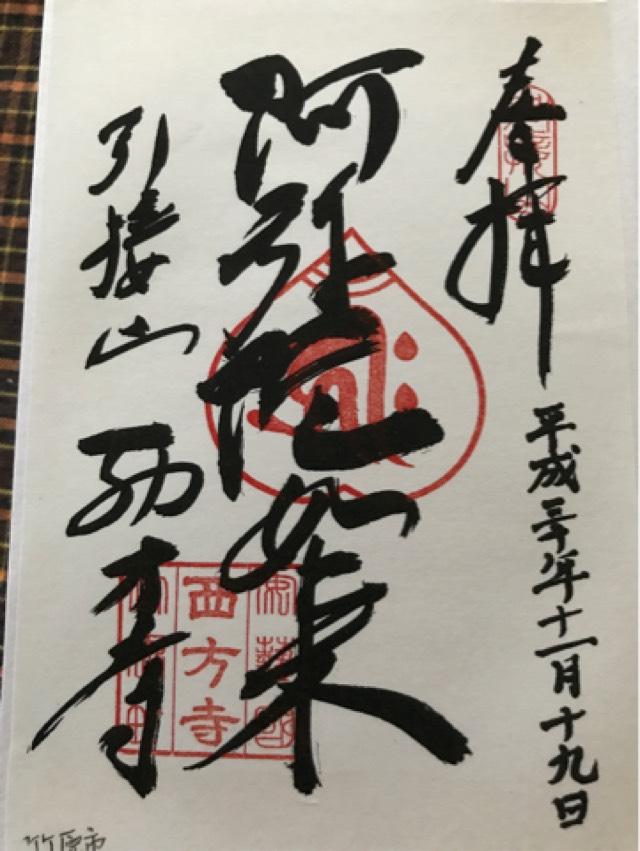 奉拝
平成三十年十一月十九日
阿弥陀如来
引接山 西方寺
安藝國
西方寺
竹原市